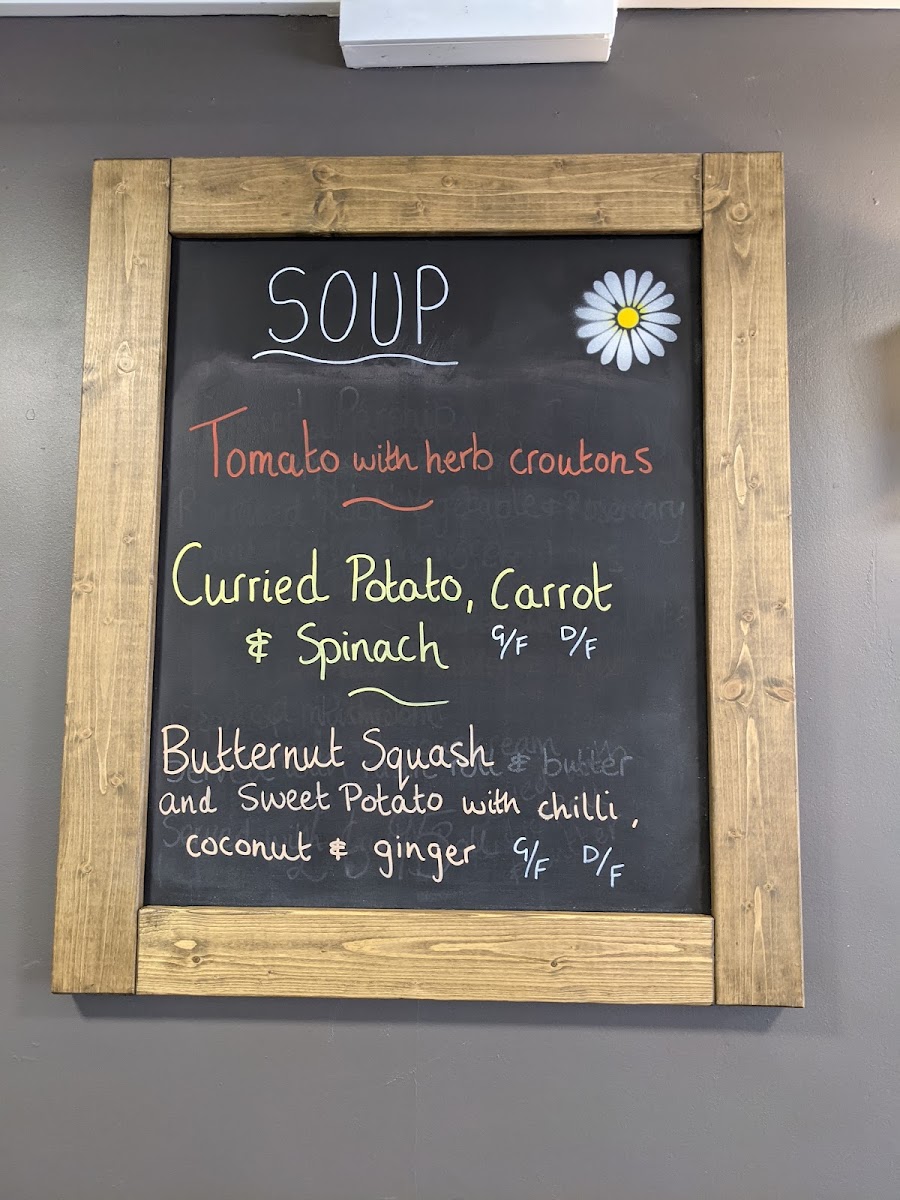 SOUP
Tomato with herb croutons
Curried Potato, Carrot
& Spinach G/F D/F
Butternut Squash
& butter
and Sweet Potato with chilli,
coconut & ginger G/F D/F